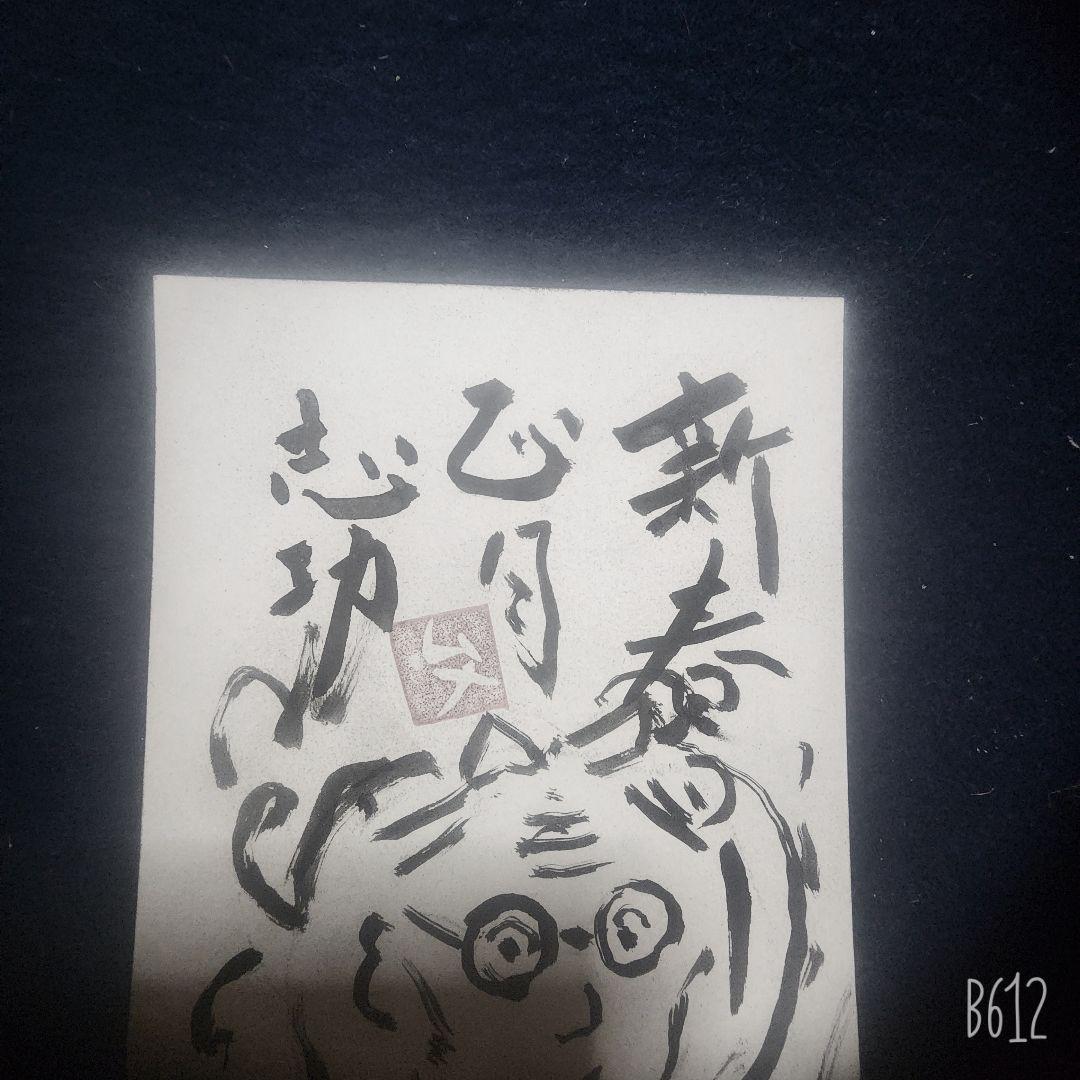 新春
正月
志功
B612